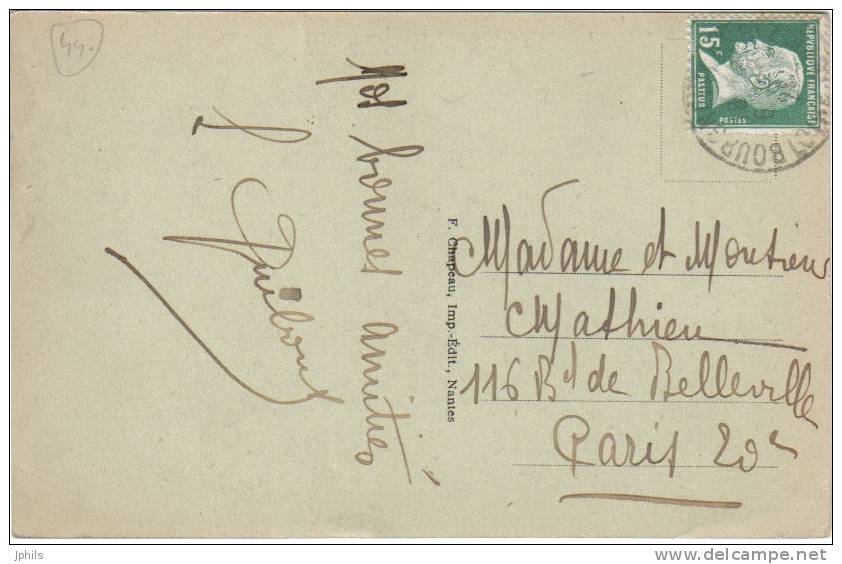 44.
Nos bonnes amitiés
F. Chapeau, Imp.-Édit., Nantes
REPVBLIQVE FRANÇAISE
15c
PASTEUR
POSTES
BOURG
Madame et Monsieur
Mathieu
116 Bd de Belleville
Paris 20e
jphils
www.delcampe.net